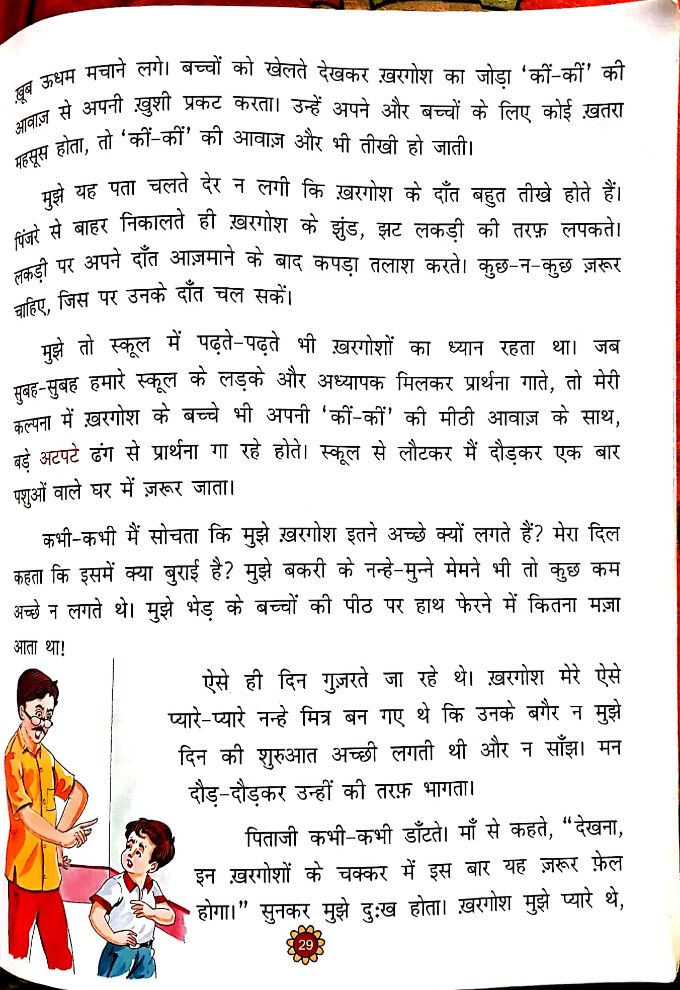 ख़ूब ऊधम मचाने लगे। बच्चों को खेलते देखकर ख़रगोश का जोड़ा ‘कीं-कीं’ की
आवाज़ से अपनी ख़ुशी प्रकट करता। उन्हें अपने और बच्चों के लिए कोई ख़तरा
महसूस होता, तो ‘कीं-कीं’ की आवाज़ और भी तीखी हो जाती।
मुझे यह पता चलते देर न लगी कि ख़रगोश के दाँत बहुत तीखे होते हैं।
पिंजरे से बाहर निकालते ही ख़रगोश के झुंड, झट लकड़ी की तरफ़ लपकते।
लकड़ी पर अपने दाँत आज़माने के बाद कपड़ा तलाश करते। कुछ-न-कुछ ज़रूर
चाहिए, जिस पर उनके दाँत चल सकें।
मुझे तो स्कूल में पढ़ते-पढ़ते भी ख़रगोशों का ध्यान रहता था। जब
सुबह-सुबह हमारे स्कूल के लड़के और अध्यापक मिलकर प्रार्थना गाते, तो मेरी
कल्पना में ख़रगोश के बच्चे भी अपनी ‘कीं-कीं’ की मीठी आवाज़ के साथ,
बड़े अटपटे ढंग से प्रार्थना गा रहे होते। स्कूल से लौटकर मैं दौड़कर एक बार
पशुओं वाले घर में ज़रूर जाता।
कभी-कभी मैं सोचता कि मुझे ख़रगोश इतने अच्छे क्यों लगते हैं? मेरा दिल
कहता कि इसमें क्या बुराई है? मुझे बकरी के नन्हे-मुन्ने मेमने भी तो कुछ कम
अच्छे न लगते थे। मुझे भेड़ के बच्चों की पीठ पर हाथ फेरने में कितना मज़ा
आता था!
ऐसे ही दिन गुज़रते जा रहे थे। ख़रगोश मेरे ऐसे
प्यारे-प्यारे नन्हे मित्र बन गए थे कि उनके बगैर न मुझे
दिन की शुरुआत अच्छी लगती थी और न साँझ। मन
दौड़-दौड़कर उन्हीं की तरफ़ भागता।
पिताजी कभी-कभी डाँटते। माँ से कहते, “देखना,
इन ख़रगोशों के चक्कर में इस बार यह ज़रूर फ़ेल
होगा।” सुनकर मुझे दुःख होता। ख़रगोश मुझे प्यारे थे,
29